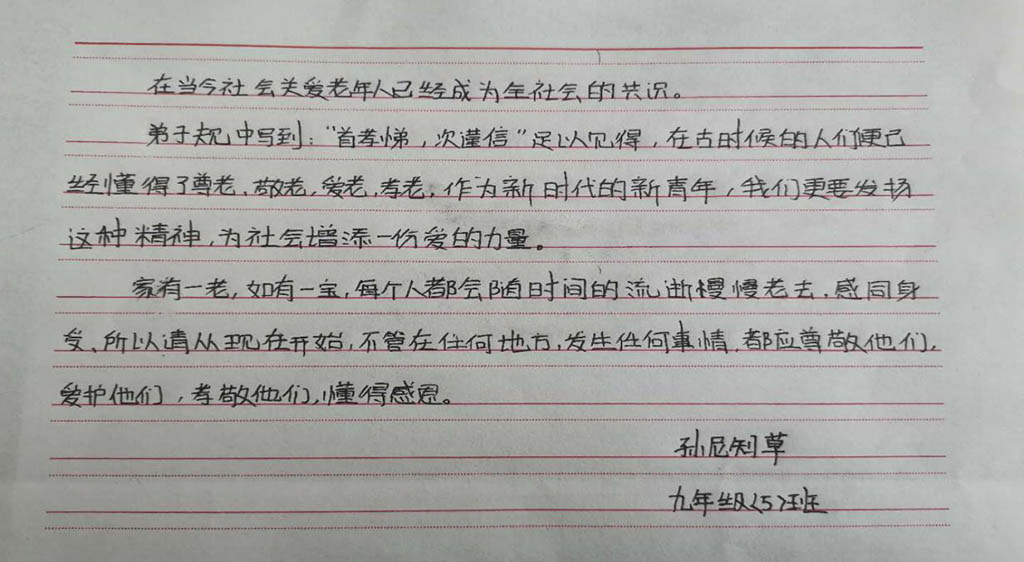 在当今社会关爱老年人已经成为全社会的共识。
弟子规中写到：“首孝悌，次谨信”足以见得，在古时候的人们便已
经懂得了尊老、敬老，爱老，孝老，作为新时代的新青年，我们更要发扬
这种精神，为社会增添一份爱的力量。
家有一老，如有一宝，每个人都会随时间的流逝慢慢老去，感同身
受、所以请从现在开始，不管在任何地方，发生任何事情，都应尊敬他们，
爱护他们，孝敬他们，懂得感恩。
孙尼知草
九年级〈5〉班